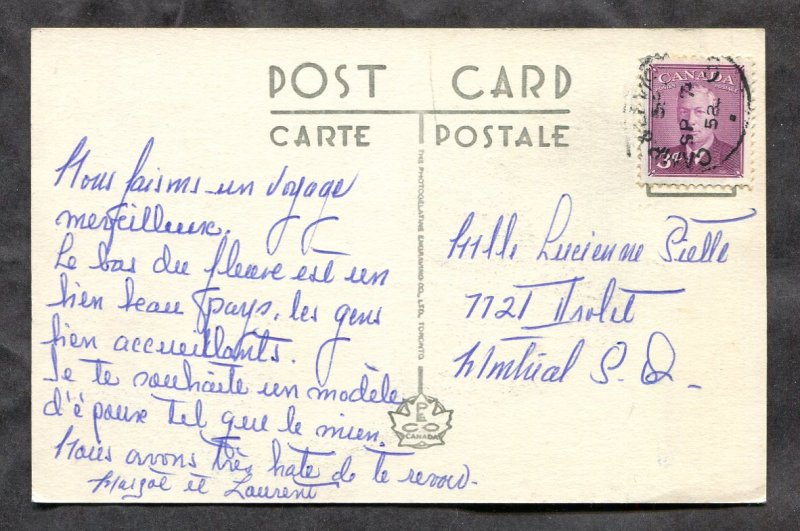 POST CARD
CARTE POSTALE
CANADA
POSTES POSTAGE
3
SP 7
52
Nous faisons un voyage
merveilleux.
Le bas du fleuve est un
bien beau pays, les gens
bien accueillants.
Je te souhaite un modèle
d'époux tel que le mien.
Nous avons très hate de te revoir.
Margot et Laurent
THE PHOTOGELATINE ENGRAVING CO., LTD. TORONTO
PECO
CANADA
Mlle Lucienne
7721 Drolet
Montréal P. Q.